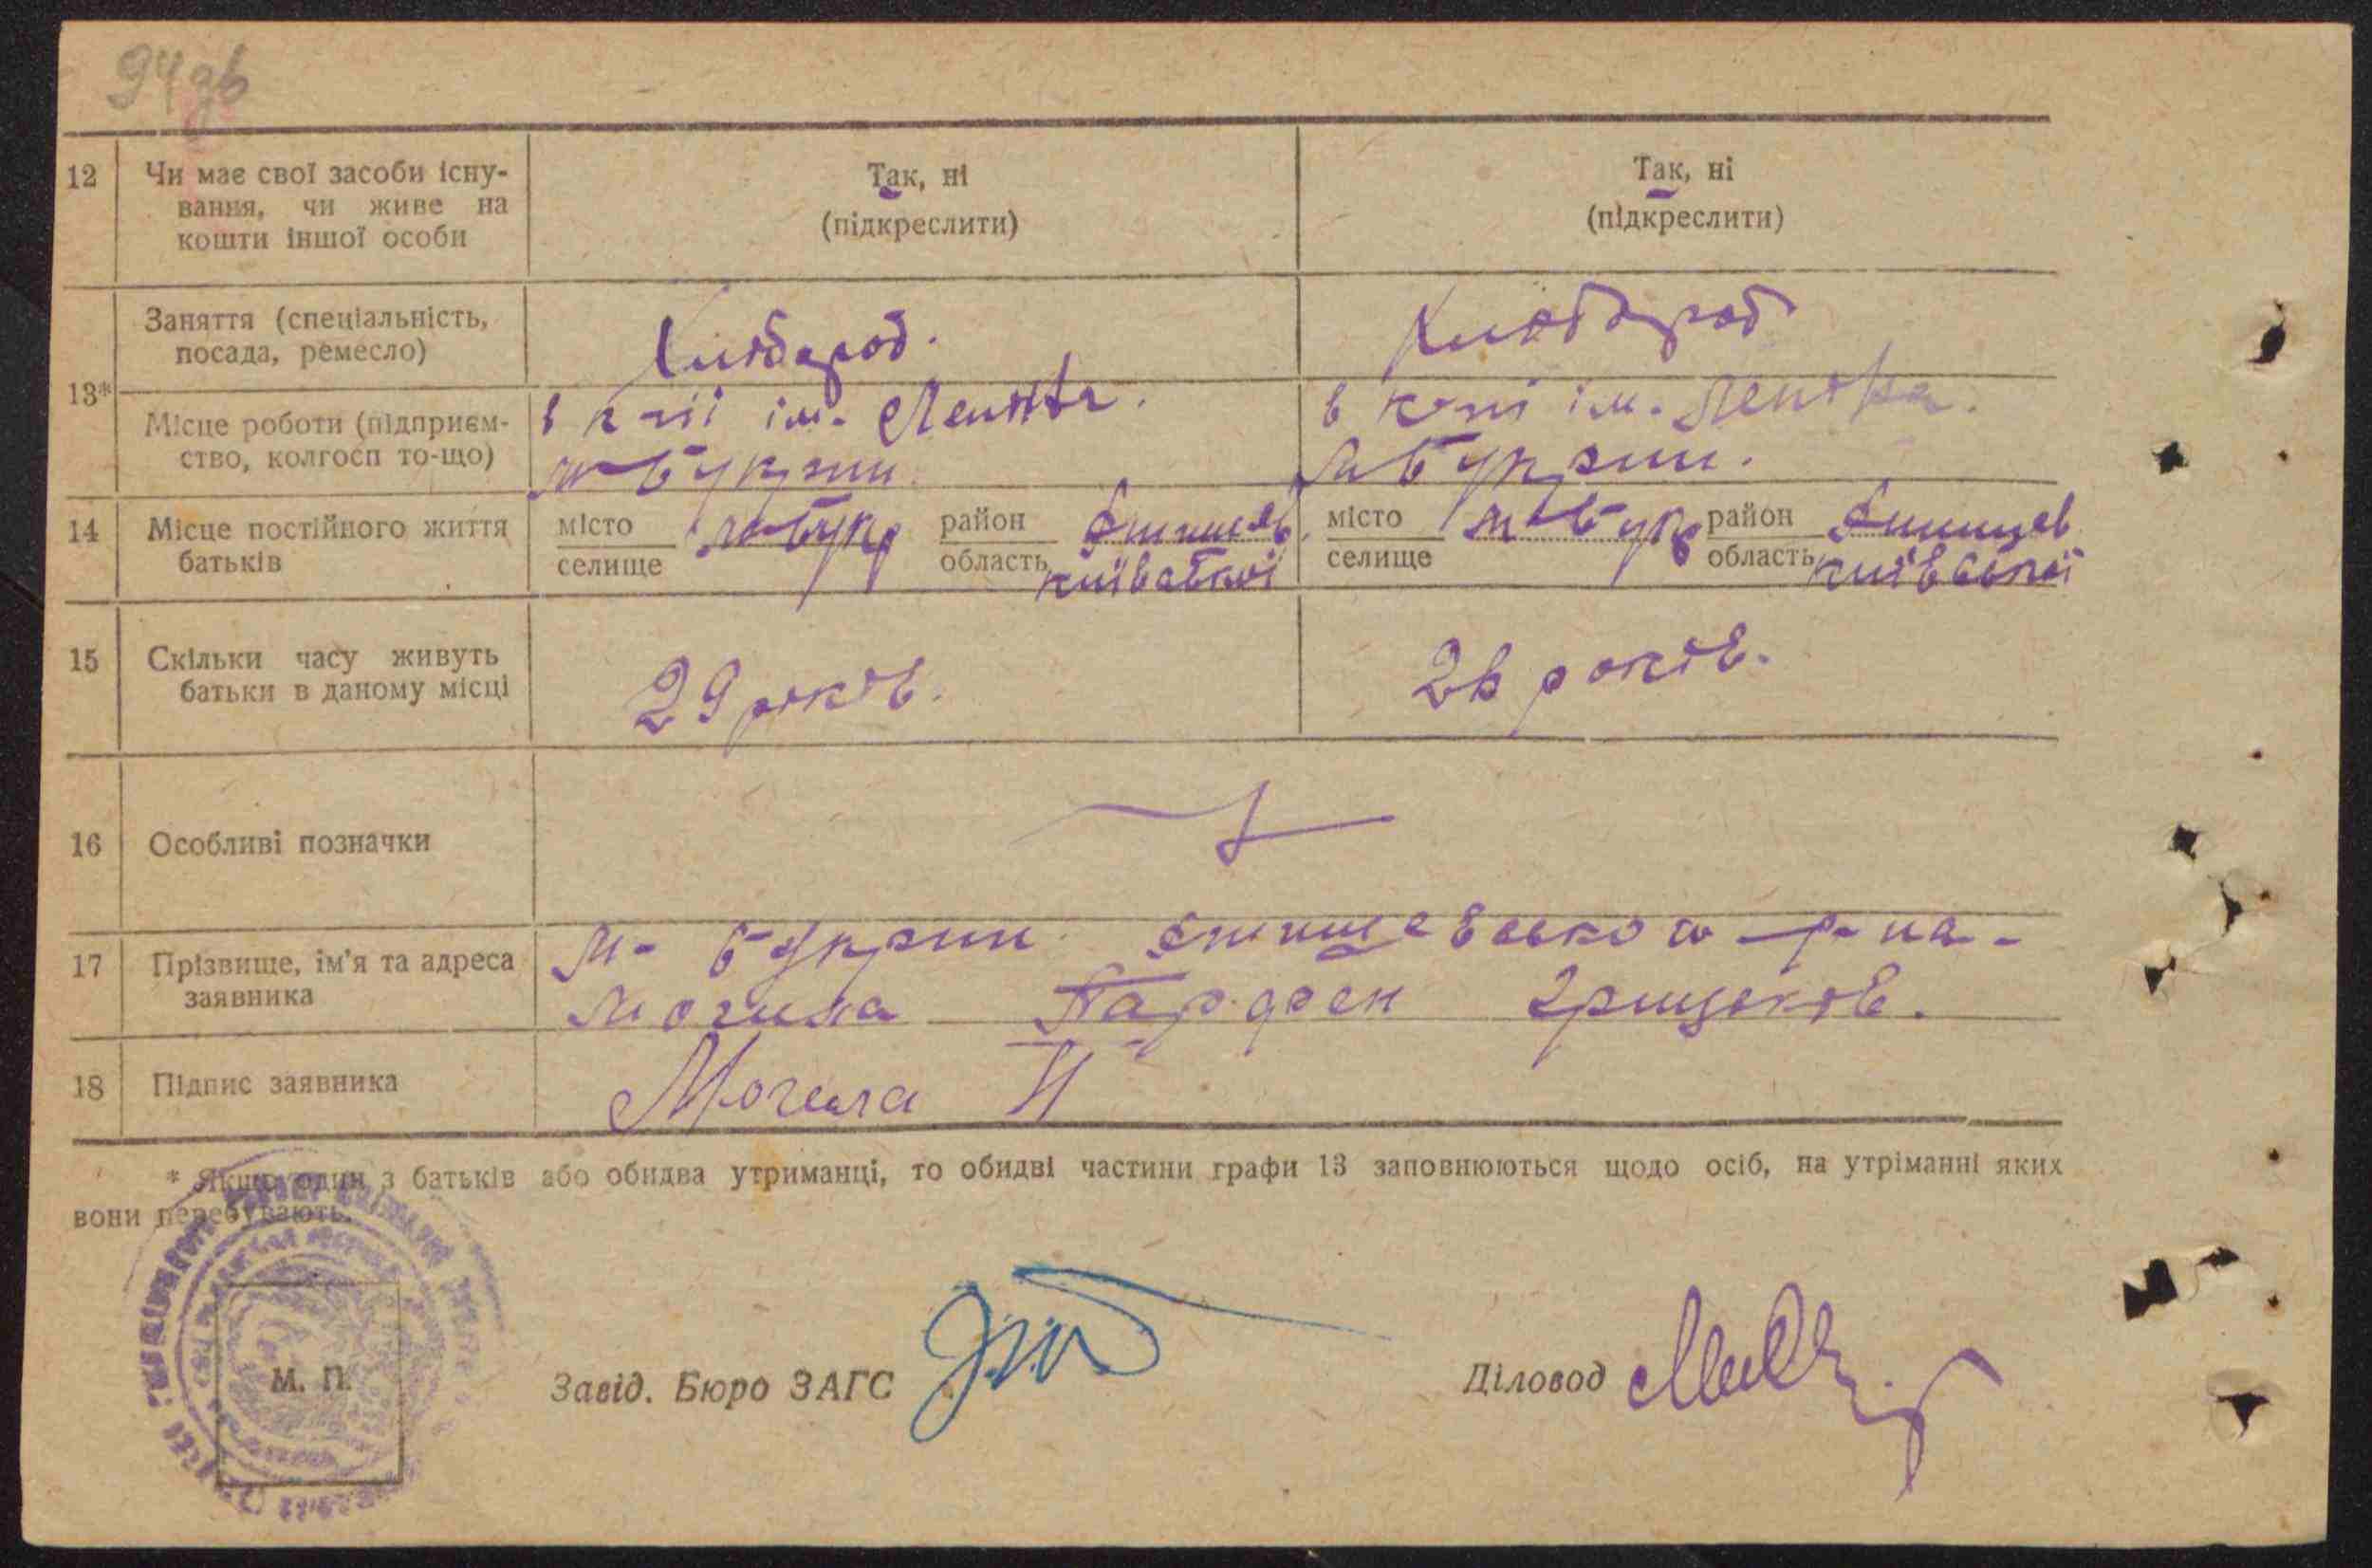 94зв
12 Чи має свої засоби існу-
вання, чи живе на
кошти іншої особи
Так, ні
(підкреслити)
Так, ні
(підкреслити)
13*
Заняття (спеціальність,
посада, ремесло)
Хлібороб.
Хлібороб
Місце роботи (підприєм-
ство, колгосп то-що)
в к-пі ім. Леніна.
м-Букрин.
в к-пі ім. Леніна.
м Букрин.
14 Місце постійного життя
батьків
місто
селище
м-Букр
район
область
київської
місто
селище
м-Букр
район
область
київської
15 Скільки часу живуть
батьки в даному місці
29 років.
26 років.
16 Особливі позначки
17 Прізвище, ім'я та адреса
заявника
м- Букрин р-на-
Могила Парфен
18 Підпис заявника
Могила П
* Якщо один з батьків або обидва утриманці, то обидві частини графи 13 заповнюються щодо осіб, на утріманні яких
вони перебувають.
М. П.
Завід. Бюро ЗАГС
Діловод